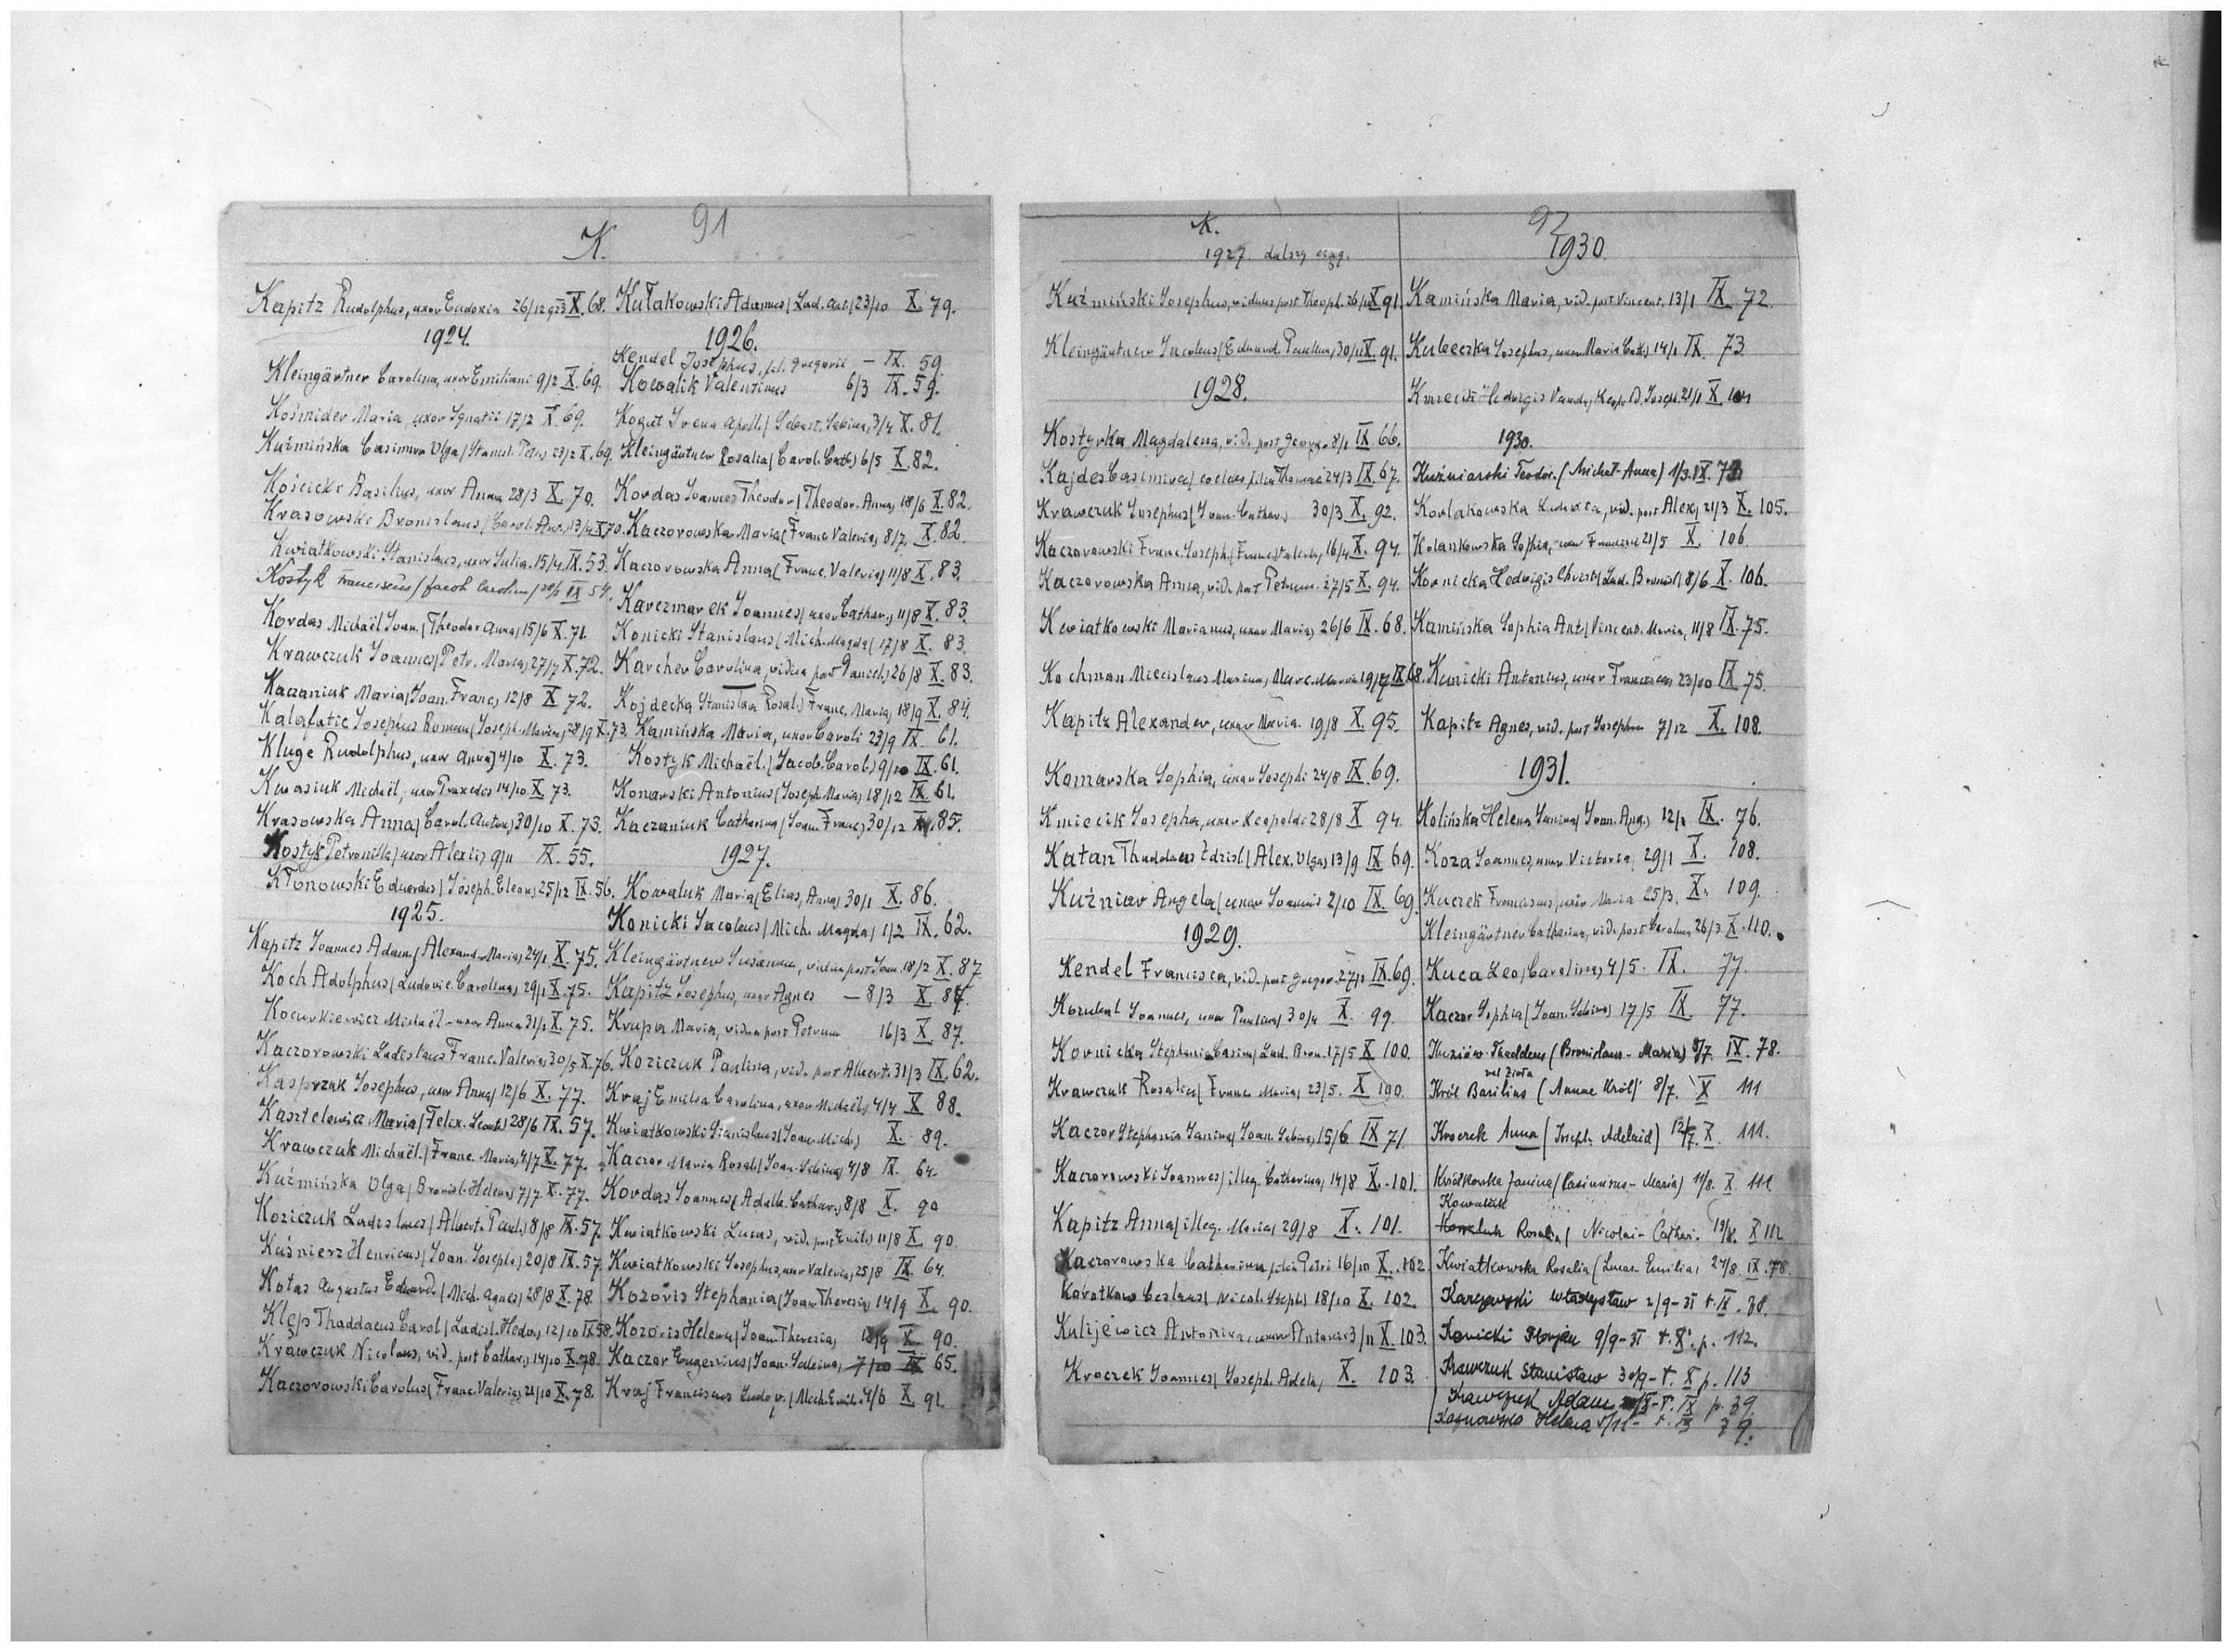 91
K.
Kapitz Rudolphus, uxor Eudoxia 26/12 923 X. 68.
1924.
Kleingärtner Carolina, uxor Emiliani 9/2 X. 69.
Kośmider Maria, uxor Ignatii 17/2 X. 69.
Kuźmińska Casimira Olga (Stanisl. Petr.) 23/2 X. 69.
Kościcki Basilius, uxor Anna 28/3 X. 70.
Krasowski Bronislaus, (Carol. Ant.) 13/4 X 70.
Kwiatkowski Stanislaus, uxor Julia. 15/4. IX. 53.
Kostyk Franciscus (Jacob Carolina) IX 54.
Kordas Michaël Joan. (Theodor Anna) 15/6 X. 71.
Krawczuk Joannes (Petr. Maria) 27/7 X. 72.
Kaczaniuk Maria (Joan. Franc.) 12/8 X 72.
Kalafatic Josephus Romanus (Joseph. Maria) 28/9 X. 73.
Kluge Rudolphus, uxor Anna) 4/10 X. 73.
Kwasiuk Michaël, uxor Praxedis 14/10 X. 73.
Krasowska Anna (Carol. Anton.) 30/10 X. 73.
Kostyk Petronilla (uxor Alexii) 9/11 IX. 55.
Kłonowski Eduardus (Joseph. Eleon.) 25/12 IX. 56.
1925.
Kapitz Joannes Adam (Alexand. Maria) 24/1 X. 75.
Koch Adolphus (Ludovic. Carolina) 29/1 X. 75.
Kocurkiewicz Michaël - uxor Anna 31/1 X. 75.
Kaczorowski Ladislaus Franc. Valeria 30/5 X. 76.
Kasprzak Josephus, uxor Anna) 12/6 X. 77.
Kasztelowicz Maria (Felix. Leont.) 28/6 IX. 57.
Krawczuk Michaël. (Franc. Maria) 4/7 X. 77.
Kuźmińska Olga (Bronisl. Helena) 7/7 X. 77.
Koziczuk Ladislaus (Albert. Paul.) 8/8 IX. 57.
Kuśnierz Henricus (Joan. Joseph.) 20/8 IX. 57.
Kotas Augustus Eduard. (Mich. Agnes) 28/8 X. 78.
Klęs Thaddaeus Carol (Ladisl. Hedv.) 12/10 IX 58.
Krawczuk Nicolaus, vid. post Cathar.) 14/10 X. 78.
Kaczorowski Carolus (Franc. Valeria) 21/10 X. 78.
Kułakowski Adamus (Lad. Ant.) 23/10 X. 79.
1926.
Kendel Josephus, fil. Gregorii — IX. 59.
Kowalik Valentinus 6/3 IX. 59.
Kogut Irena Apoll. (Sebast. Sabina) 3/4 X. 81.
Kleingärtner Rosalia (Carol. Cath.) 6/5 X. 82.
Kordas Joannes Theodor (Theodor. Anna) 18/6 X. 82.
Kaczorowska Maria (Franc. Valeria) 8/7 X. 82.
Kaczorowska Anna (Franc. Valeria) 11/8 X. 83.
Karczmarek Joannes (uxor Cathar.) 11/8 X. 83.
Konicki Stanislaus (Mich. Magda) 17/8 X. 83.
Karcher Carolina, vidua post Daniel.) 26/8 X. 83.
Kojdecka Stanislaa Rosal.) Franc. Maria) 18/9 X. 84.
Kamińska Maria, uxor Caroli 23/9 IX. 61.
Kostyk Michaël. (Jacob. Carol.) 9/10 IX. 61.
Konarski Antonius (Joseph. Maria) 18/12 IX. 61.
Kaczaniuk Catharina (Joan. Franc.) 30/12 X. 85.
1927.
Kowaluk Maria (Elias, Anna) 30/1 X. 86.
Konicki Jacobus (Mich. Magda) 1/2 IX. 62.
Kleingärtner Susanna, vidua post Joan. 18/2 X. 87
Kapitz Josephus, uxor Agnes — 8/3 X. 87.
Krupa Maria, vidua post Petrum 16/3 X. 87.
Koziczuk Paulina, vid. post Albert. 31/3 IX. 62.
Kraj Emilia Carolina, uxor Michaëlis 4/4 X 88.
Kwiatkowski Stanislaus (Joan. Mich.) X. 89.
Kaczor Maria Rosal. (Joan. Sabina) 4/8 IX. 64.
Kordas Joannes (Adalb. Cathar.) 8/8 X. 90
Kwiatkowski Lucas, vid. post Emil.) 11/8 X. 90.
Kwiatkowski Josephus, uxor Valeria) 25/8 IX. 64.
Kozoris Stephania (Joan. Theresia) 14/9 X. 90.
Kozoris Helena (Joan. Theresia) X. 90.
Kaczor Eugenius (Joan. Sabina) 7/10 IX 65.
Kraj Franciscus Ludov. (Mich. Emil. X. 91.
K.
1927. dalszy ciąg.
Kuźmiński Josephus, viduus post Theoph. 26/10 X 91.
Kleingärtner Jacobus (Eduard. Paulina) 30/11 X. 91.
1928.
Kostyrka Magdalena, vid. post Georg. 8/1 IX 66.
Kajdes Casimira (coelebs filia Thomae 24/3 IX 67.
Krawczuk Josephus (Joan. Cathar.) 30/3 X. 92.
Kaczorowski Franc. Joseph. (Franc. Valeria) 16/4 X. 94.
Kaczorowska Anna, vid. post Petrum. 27/5 X. 94.
Kwiatkowski Marianus, uxor Maria) 26/6 IX. 68.
Kochman Miecislaus Marian, Marc. Maria 19/7 IX 68.
Kapitz Alexander, uxor Maria. 19/8 X. 95.
Komarska Sophia, uxor Josephi 24/8 IX. 69.
Kmiecik Josepha, uxor Leopoldi 28/8 X 94.
Katan Thaddaeus Zdzisl. (Alex. Olga) 13/9 IX 69.
Kuźniar Angela (uxor Joannis 2/10 IX. 69.
1929.
Kendel Francisca, vid. post Gregor. 27/1 IX. 69.
Kozubal Joannes, uxor Paulina) 30/4 X. 99.
Kornicka Stephania Casim. (Lad. Bron. 17/5 X 100.
Krawczuk Rosalia (Franc. Maria) 23/5. X 100.
Kaczor Stephania Janina (Joan. Sabina) 15/6 IX 71.
Kaczorowski Joannes (illeg. Catharina) 14/8 X. 101.
Kapitz Anna (illeg. Maria) 29/8 X. 101.
Kaczorowska Catharina filia Petri 16/10 X. 102
Korotkow Ceslaus (Nicol. Steph.) 18/10 X. 102.
Kulijewicz Antonina, uxor Antonii 3/11 X. 103.
Kroczek Joannes (Joseph. Adela) X. 103.
92
1930.
Kamińska Maria, vid. post Vincent. 13/1 IX. 72.
Kubeczka Josephus, uxor Maria Cath.) 14/1 IX. 73.
Kmiecik Hedvigis Vanda, Joseph. 21/1 X 104
1930.
Kuźniarski Teodor. (Michał-Anna) 1/3. IX. 73
Korlakowska Ludwica, vid. post Alex.) 21/3 X. 105.
Kolankowska Sophia, uxor Francisci 21/5 X. 106.
Kornicka Hedvigis Christ. (Lad. Bronisl.) 8/6 X. 106.
Kamińska Sophia Ant. (Vincent. Maria) 11/8 IX. 75.
Kunicki Antonius, uxor Francisca) 23/10 IX 75.
Kapitz Agnes, vid. post Josephum 7/12 X. 108.
1931.
Kolińska Helena Janina (Joan. Ang.) 12/1 IX. 76.
Koza Joannes, uxor Victoria) 29/1 X. 108.
Kuczek Franciscus, uxor Maria 25/3. X. 109.
Kleingärtner Catharina, vid. post Carolum 26/3 X. 110.
Kuca Leo (Carolina) 4/5. IX. 77.
Kaczor Sophia (Joan. Sabina) 17/5 IX. 77.
Kuziów Thaddeus (Bronislaus - Maria) 8/7. IX. 78.
vel Zioła
Król Basilius (Annae Król) 8/7. X 111
Kroczek Anna (Joseph. Adelaid) 12/7. X. 111.
Kwiatkowska Janina (Casimirus - Maria) 11/8. X. 111
Kowaluk
Rosalia (Nicolai - Cathar. 19/8. X 112
Kwiatkowska Rosalia (Lucas - Emilia) 24/8. IX. 78.
Karczewski Władysław 2/9-31 t. IX. 38.
Konicki 9/9-31 t. X. p. 112.
Krawczuk Stanisław 30/9 - t. X p. 113
Krawczuk Adam - t. IX p. 39.
Helena 5/11 - t. IX 79.